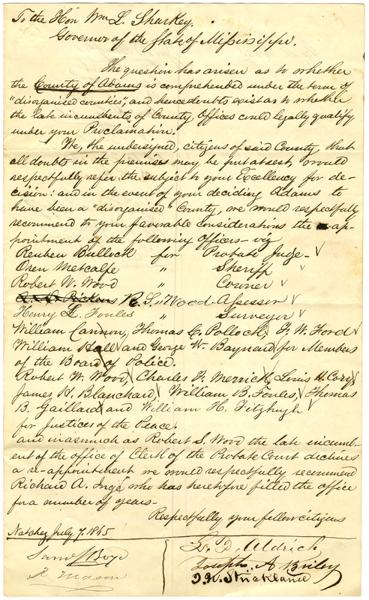 To the Hon Wm L. Sharkey,
Governor of the State of Mississippi.
The question has arisen as to whether
the County of Adams is comprehended under the term of
"disorganised counties", and hence doubts exist as to whether
the late incumbents of County Offices could legally qualify
under your Proclamation.
We, the undersigned, citizens of said County, that
all doubts in the premises may be put at rest, would
respectfully refer the subject to your Excellency for de-
cision: and in the event of your deciding Adams to
have been a "disorganised" County, we would respectfully
recommend to your favorable considerations the ap-
pointment of the following Officers - viz
Reuben Bullock for Probate Judge
Oren Metcalfe " Sheriff
Robert W. Wood " Coroner
R. S. Wood Assessor
Henry L. Fowles " Surveyor
William Cannon, Thomas C. Pollock, F. W. Ford
William Hall and George W. Baynard for Members
of the Board of Police.
Robert W. Wood, Charles F. Merrick, Louis H. Cory
James H. Blanchard, William B. Fowles, Thomas
B. Gaillard and William H. Fitzhugh
for Justices of the Peace.
and inasmuch as Robert S. Wood the late incumb-
ent of the office of Clerk of the Probate Court declines
a re-appointment we would respectfully recommend
Richard A. Inge, who has heretofore filled the office
for a number of years-
Respectfully your fellow citizens
Natchez July 7. 1865
Saml Boyd
G. D. Aldrich
Joseph A. Briley
D. W. Strickland